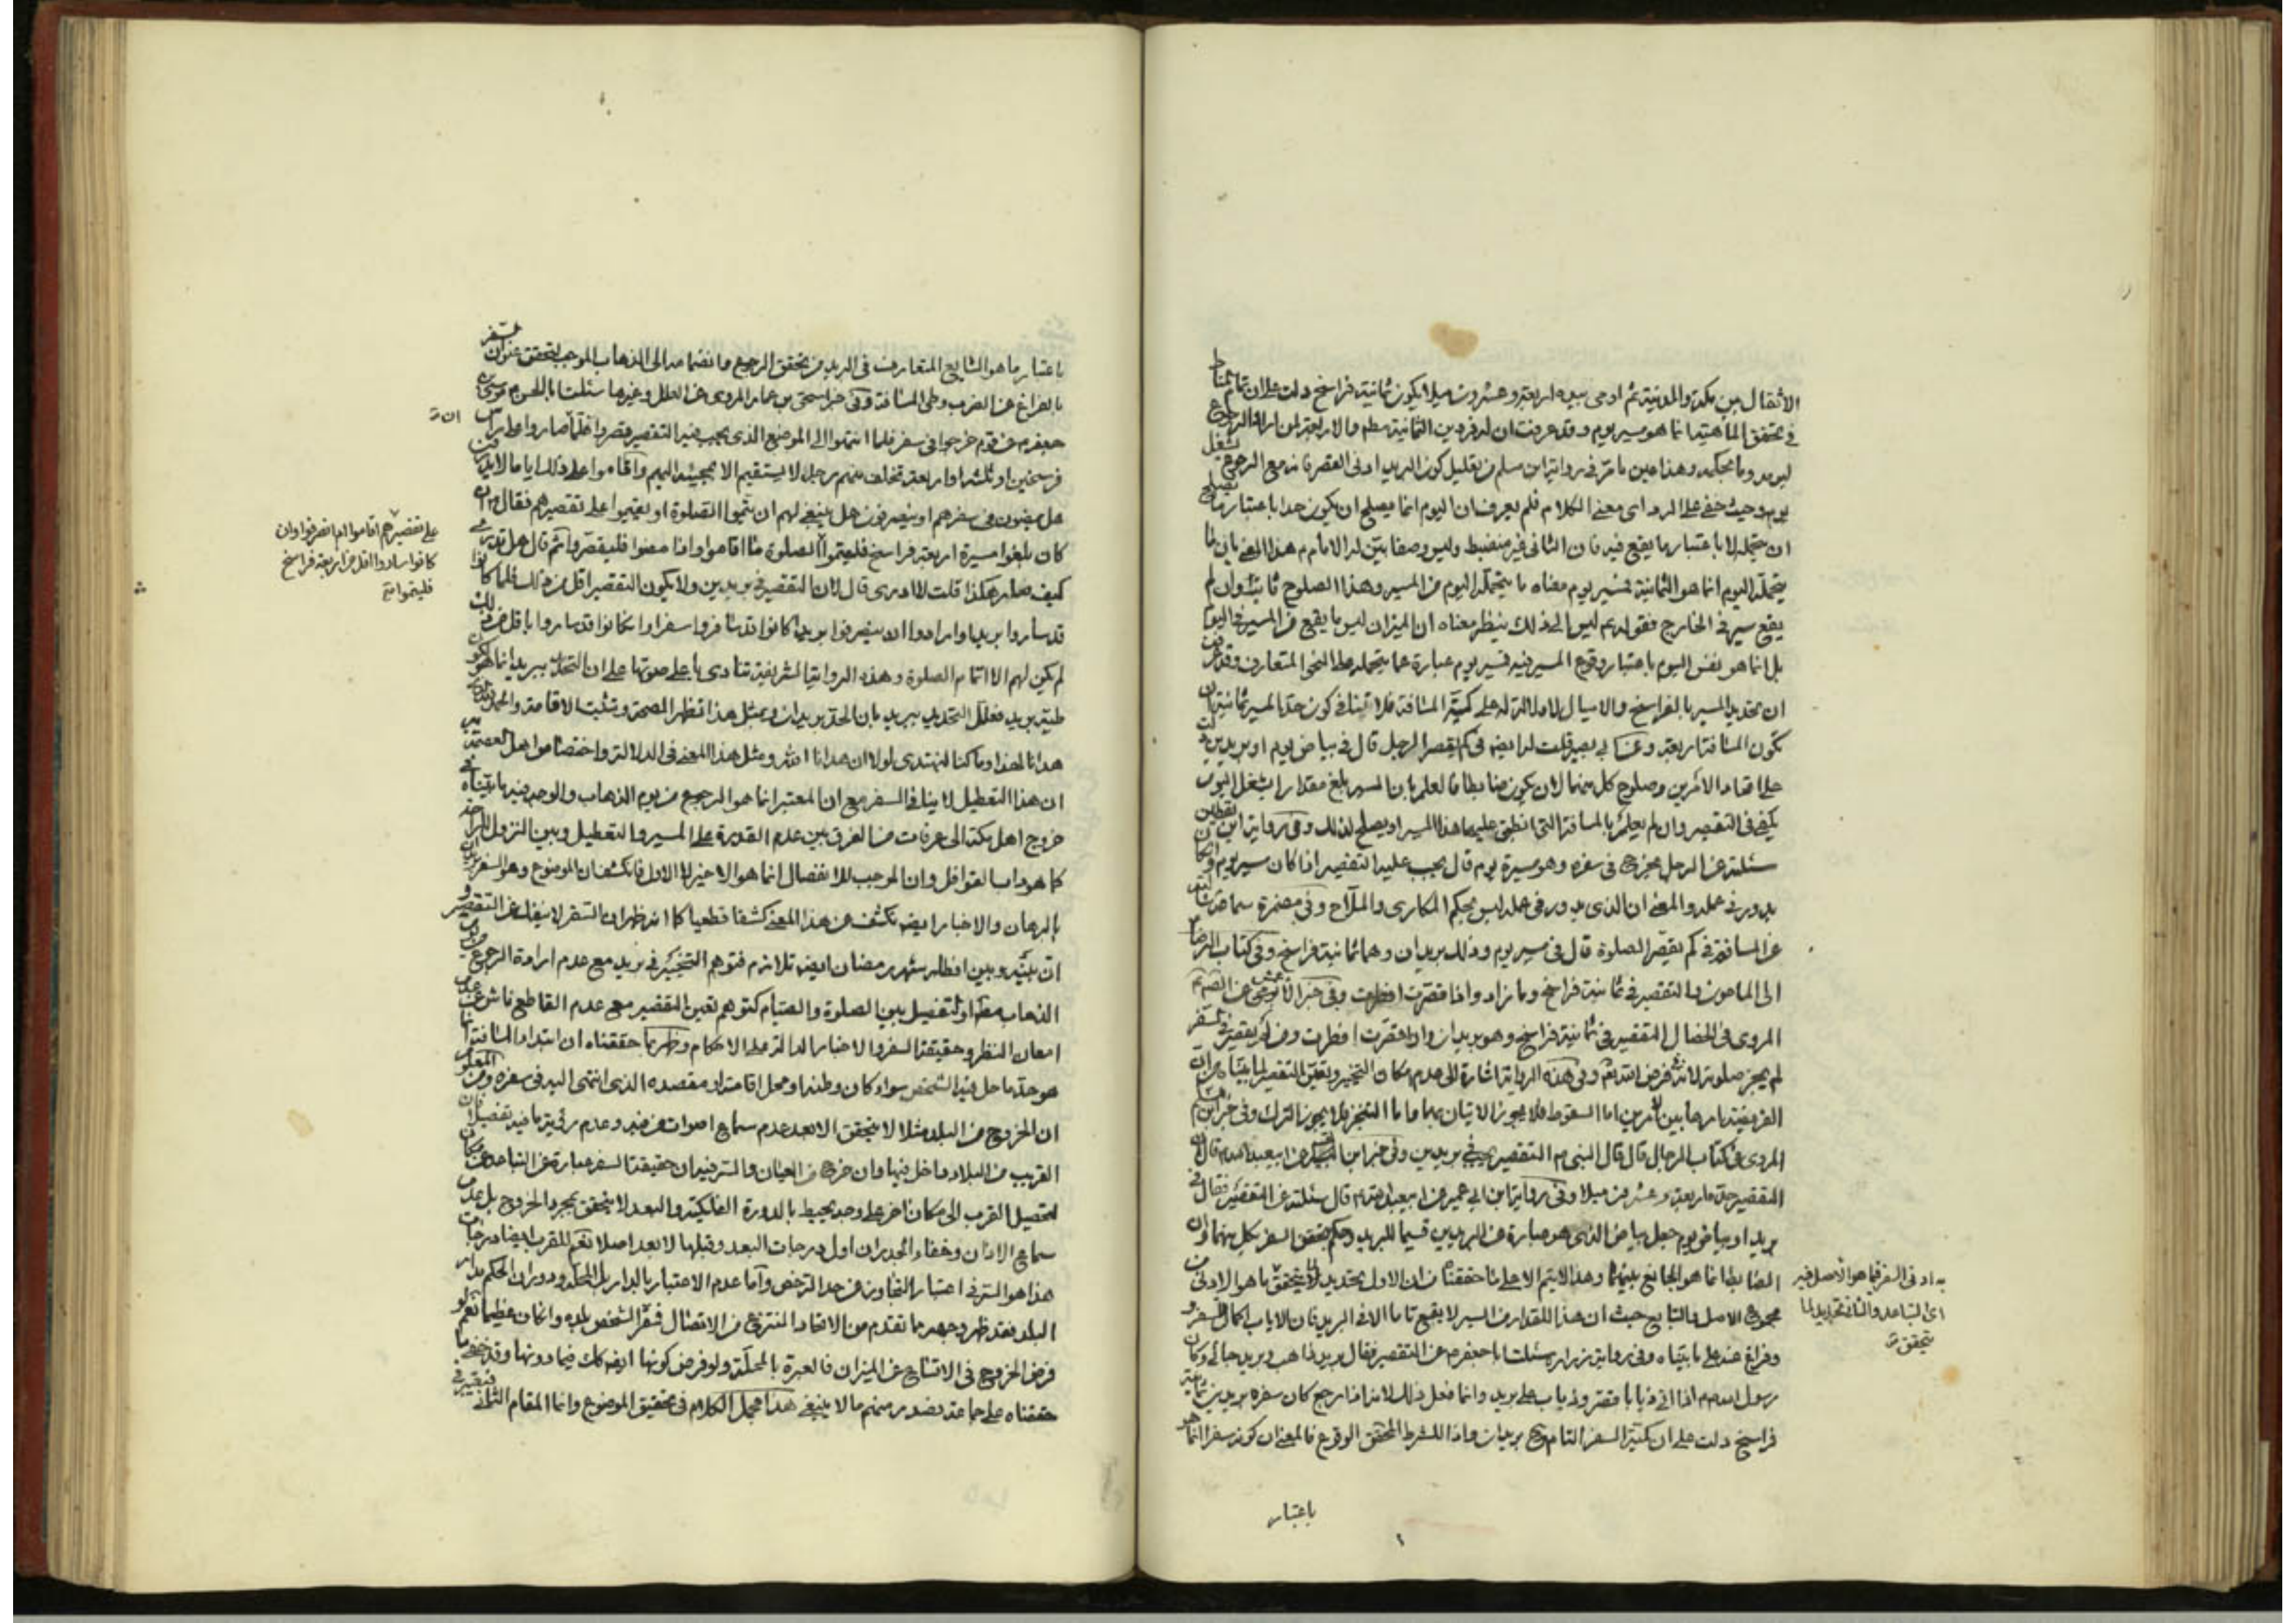 الاثقال بين مكة والمدينة ثم اومى بيده اربعة وعشرون ميلا يكون ثمانية فراسخ دلت على ان تمام المناط
في تحقق الماهية انما هو مسير يوم وقد عرفت ان له فردين الثمانية مطم والاربعة لمن اراد الرجوع
ليومه وما بحكمه وهذا عين ما مر في رواية ابن مسلم من تعليل كون البريد ادنى القصر فانه مع الرجوع شغل
يومه وحيث خفى على الراوى معنى الكلام فلم يعرف ان اليوم انما يصلح ان يكون حدا باعتبار ما يصلح
ان يتحمله لا باعتبار ما يقع فيه فان الثانى غير منضبط وليس وصفا بين له الامام م هذا المعنى بان ما
يتحمله اليوم انما هو الثمانية فمسير يوم معناه ما يتحمله اليوم من المسير وهذا الصلوح ثابت وان لم
يقع سير في الخارج فقوله م ليس الى ذلك ينظر معناه ان الميزان ليس ما يقع من المسير في اليوم
بل انما هو نفس اليوم باعتبار وقوع المسير فيه فمسير يوم عبارة عما يتحمله على النحو المتعارف وقد عرفت
ان تحديد المسير بالفراسخ والاميال لا دلالة له على كمية المسافة فلا ينافى كون حد المسير ثمانية ان
تكون المسافة اربعة وعن ابى بصير قلت له ايضا في كم يقصر الرجل قال في بياض يوم او بريدين دلت
على اتحاد الامرين وصلوح كل منهما لان يكون ضابطا فالعلم بان المسير بلغ مقدارا يشغل اليوم
يكفى في التقصير وان لم يعلم بالمسافة التى انطبق عليها هذا المسير او يصلح لذلك وفي رواية ابن يقطين
سئلته عن الرجل يخرج في سفره وهو مسيرة يوم قال يجب عليه التقصير اذا كان مسير يوم وان كان
يدور في عمله والمعنى ان الذى يدور في عمله ليس بحكم المكارى والملاح وفي مضمرة سماعة سئلته
عن المسافر في كم يقصر الصلوة قال في مسير يوم وذلك بريدان وهما ثمانية فراسخ وفي كتاب الرضا م
الى المامون والتقصير في ثمانية فراسخ وما زاد واذا قصرت افطرت وفي خبر الاعمش عن الصم م
المروى في الخصال التقصير في ثمانية فراسخ وهو بريدان واذا قصرت افطرت ومن لم يقصر في السفر
لم يجز صلوته لانه فرض الله تعم وفي هذه الرواية اشارة الى عدم مكان التخيير وتعين التقصير لما بيناه من ان
المروى في كتاب الرجال قال قال النبى م التقصير يجب في بريدين
التقصير حده اربعة وعشرون ميلا وفي رواية ابن ابى عمير عن ابيعبدالله م قال سئلته عن التقصير فقال في
بريد او بياض يوم جعل بياض الذى هو عبارة عن البريدين قسيما للبريد وحكم بتحقق السفر بكل منهما وان
الضابط انما هو الجامع بينهما وهذا لا يتم الا على ما حققناه من ان الاول تحديد لما يتحقق به ادنى السفر فيما هو الاصل فيه
اى التباعد والثانى تحديد لما
يتحقق ة
مجموع الاصل والتابع حيث ان هذا المقدار من السير لا يقع تاما الا في البريد فان الاياب اكمال السفر و
وفراغ عنه على ما بيناه وفي رواية زرارة سئلت ابا جعفر م عن التقصير فقال بريد ذاهب وبريد جائى وكان
رسول الله م اذا اتى ذبابا قصر وذباب على بريد وانما فعل ذلك لانه اذا رجع كان سفره بريدين ثمانية
فراسخ دلت على ان كمية السفر التام هي بريدان واذا للشرط المحقق الوقوع فالمعنى ان كونه سفرا انما هو
باعتبار
باعتبار ما هو الشايع المتعارف في البريد من تحقق الرجوع وانضمامه الى الذهاب الموجب لتحقق عنوان السفر
بالفراغ عن الضرب وطى المسافة وفي خبر اسحق بن عمار المروى عن العلل وغيرها سئلت ابا الحسن موسى بن
جعفر م عن قوم خرجوا في سفر فلما انتهوا الى الموضع الذى يجب فيه التقصير قصروا فلما صاروا على راس
ان ة
فرسخين او ثلثة او اربعة تخلف عنهم رجل لا يستقيم الا بمجيئه اليهم واقاموا على ذلك اياما لا يدرون
هل يمضون في سفرهم او ينصرفون هل ينبغى لهم ان يتموا الصلوة او يقيموا على تقصيرهم فقال م ان
كان بلغوا مسيرة اربعة فراسخ فليتموا الصلوة ما اقاموا واذا مضوا فليقصروا ثم قال هل تدرى
على تقصيرهم اقاموا ام انصرفوا وان
كانوا ساروا اقل من اربعة فراسخ
فليتموا تم
كيف صار هكذا قلت لا ادرى قال لان التقصير في بريدين ولا يكون التقصير اقل من ذلك فلما كانوا
قد ساروا بريدا وارادوا ان ينصرفوا بريدا كانوا قد سافروا سفرا وان كانوا قد ساروا باقل من ذلك
لم يكن لهم الا اتمام الصلوة وهذه الرواية الشريفة تنادى باعلى صوتها على ان التحديد ببريد انما هو لكون
طيه بريد فعلل التحديد ببريد بان الحد بريدان وبمثل هذا تظهر الصحة وتثبت الاقامة والحمد لله الذى
هدانا لهذا وما كنا لنهتدى لولا ان هدانا الله ومثل هذا المعنى في الدلالة واختصاموا اهل العصمة
ان هذا التعطيل لا ينافى السفر مع ان المعتبر انما هو الرجوع من يوم الذهاب والوجه فيه ما بيناه في
خروج اهل مكة الى عرفات من الفرق بين عدم القدرة على المسير والتعطيل وبين النزول للراحة
كما هو داب القوافل وان الموجب للانفصال انما هو الاخير لا الاول فانكشف ان الموضوع وهو السفر بريدان
بالبرهان والاخبار ايضا تكشف عن هذا المعنى كشفا قطعيا كما انه ظهر ان السفر لا ينفك عن التقصير و
ان بينه وبين افطار شهر رمضان ايضا تلازم فتوهم التخيير في بريد مع عدم ارادة الرجوع من يوم
الذهاب مطم او التفصيل بين الصلوة والصيام كتوهم تعين التقصير مع عدم القاطع ناش عن عدم
امعان النظر وحقيقة السفر والاخبار الدالة على الاحكام وظهر مما حققناه ان ابتداء المسافة انما
هو حد ما حل فيه الشخص سواء كان وطنه او محل اقامته او مقصده الذى انتهى اليه في سفره ومن المعلوم
ان الخروج من البلد مثلا لا يتحقق الا بعد عدم سماع اصوات من فيه وعدم رؤية ما فيه تفصيلا فان
القريب من البلاد داخل فيها وان خرج عن العيان والسر فيه ان حقيقة السفر عبارة عن التباعد عن مكان
لتحصيل القرب الى مكان اخر على وجه يحيط بالدورة الفلكية والبعد لا يتحقق بمجرد الخروج بل بعدم
سماع الاذان وخفاء الجدران اول درجات البعد وقبلها لا بعد اصلا نعم للقرب ايضا درجات
هذا هو السر في اعتبار التجاوز عن حد الترخص واما عدم الاعتبار بالدار بل البلد ودوران الحكم مدار
البلد فقد ظهر وجهه مما تقدم من الاتحاد المنتزع من الاتصال فمقر الشخص بلده وان كان عظيما نعم لو
فرض الخروج في الاتساع عن الميزان فالعبرة بالمحلة ولو فرض كونها ايضا كك فيما دونها وقد خفى ما
حققناه على جماعة فصدر منهم ما لا ينبغى هذا مجمل الكلام في تحقيق الموضوع واما المقام الثانى